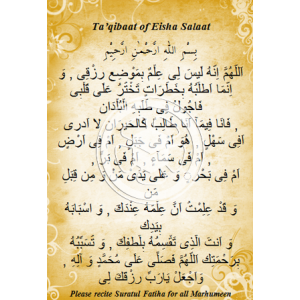 Ta'qibaat of Eisha Salaat
بِسْمِ اللهِ الرَّحْمٰنِ الرَّحِيْمِ
اَللّٰهُمَّ اِنَّهُ لَيْسَ لِى عِلْمٌ بِمَوْضِعِ رِزْقِى , وَ
اِنَّمَا اَطْلُبُهُ بِخَطَرَاتٍ تَخْطُرُ عَلَى قَلْبِى
فَاَجُوْلُ فِى طَلَبِهِ الْبُلْدَانَ
, فَاَنَا فِيمَا اَنَا طَالِبٌ كَالْحَيْرَانِ لَا اَدْرِى
اَفِى سَهْلٍ , هُوَ اَمْ فِى جَبَلٍ , اَمْ فِى اَرْضٍ
اَمْ فِى سَمَاءٍ , اَمْ فِى بَرٍّ ,
اَمْ فِى بَحْرٍ , وَ عَلَى يَدَىْ مَنْ , وَ مِنْ قِبَلِ
مَنْ
وَ قَدْ عَلِمْتُ اَنَّ عِلْمَهُ عِنْدَكَ , وَ اَسْبَابَهُ
بِيَدِكَ
, وَ اَنْتَ الَّذِى تَقْسِمُهُ بِلُطْفِكَ , وَ تُسَبِّبُهُ
بِرَحْمَتِكَ اَللّٰهُمَّ فَصَلِّ عَلَى مُحَمَّدٍ وَ آلِهِ ,
وَاجْعَلْ يَارَبِّ رِزْقَكَ لِى
Please recite Suratul Fatiha for all Marhumeen